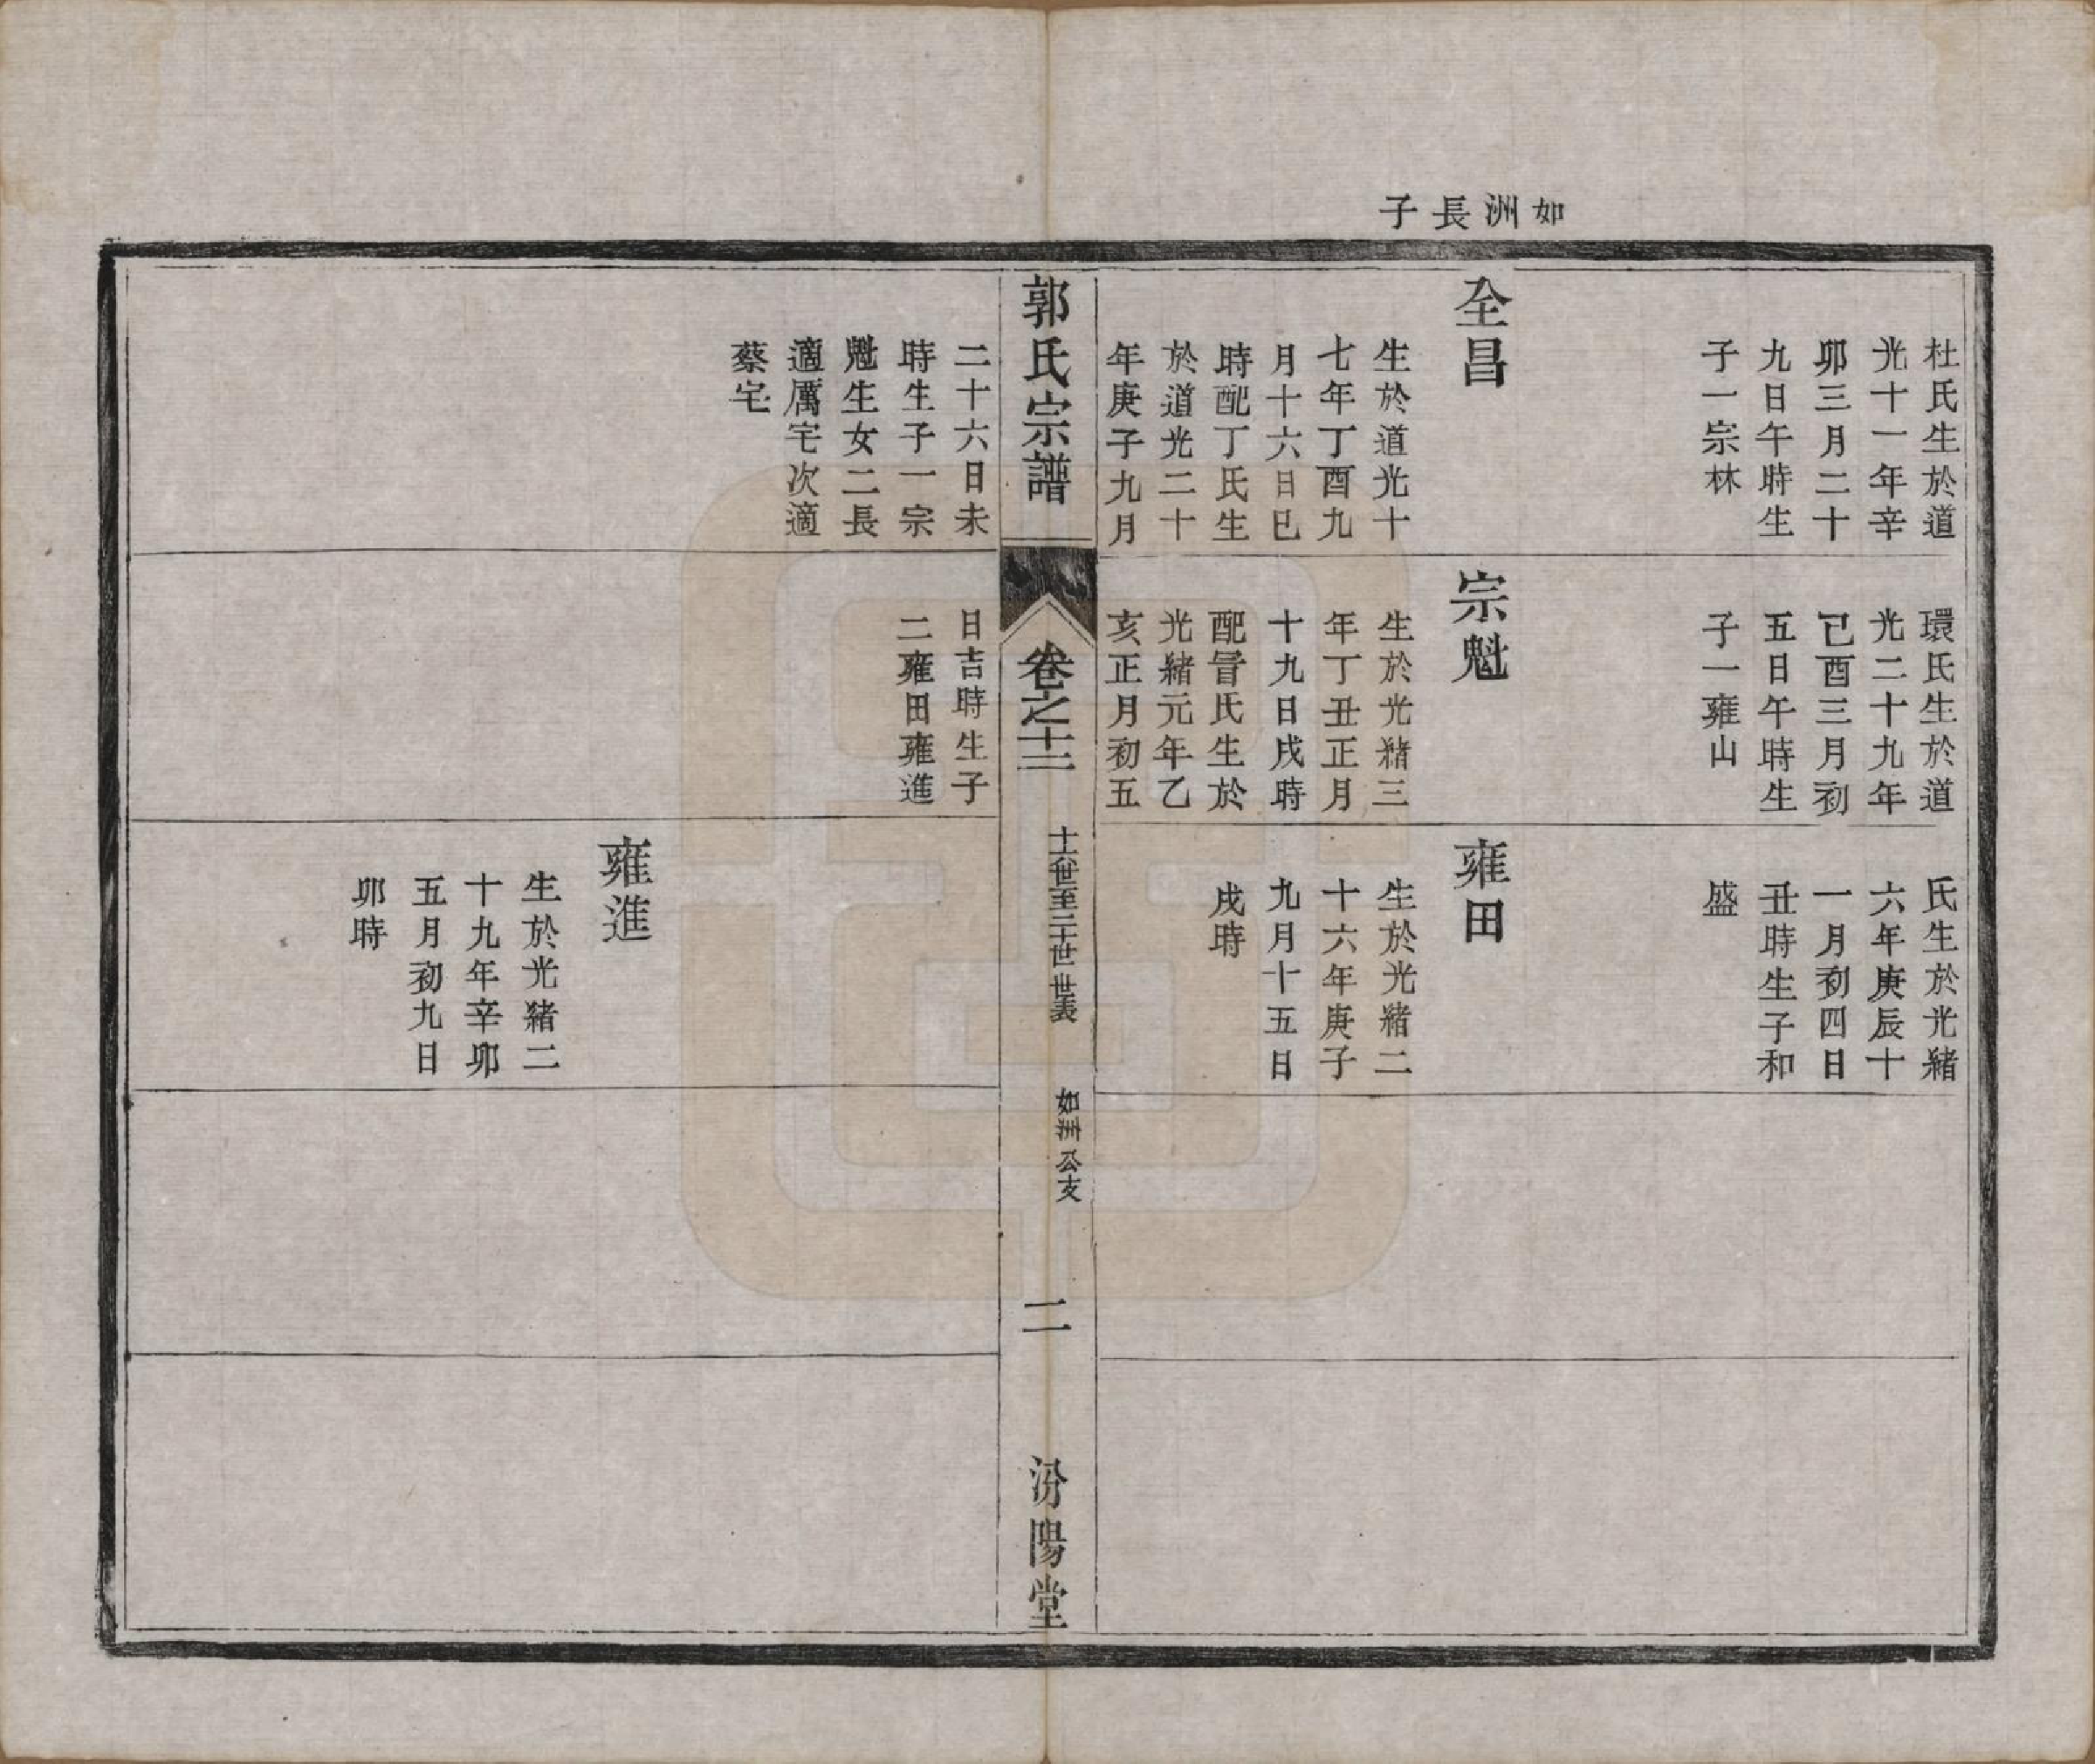 如洲長子
杜氏生於道
光十一年辛
卯三月二十
九日午時生
子一宗林
全昌
生於道光十
七年丁酉九
月十六日巳
時配丁氏生
於道光二十
年庚子九月
環氏生於道
光二十九年
己酉三月初
五日午時生
子一雍山
宗魁
生於光緒三
年丁丑正月
十九日戌時
配冒氏生於
光緒元年乙
亥正月初五
氏生於光緒
六年庚辰十
一月初四日
丑時生子和
盛
雍田
生於光緒二
十六年庚子
九月十五日
戌時
郭氏宗譜
卷之十二
十六世至二十世世表
如洲公支
二
汾陽堂
二十六日未
時生子一宗
魁生女二長
適厲宅次適
蔡宅
日吉時生子
二雍田雍進
雍進
生於光緒二
十九年辛卯
五月初九日
卯時